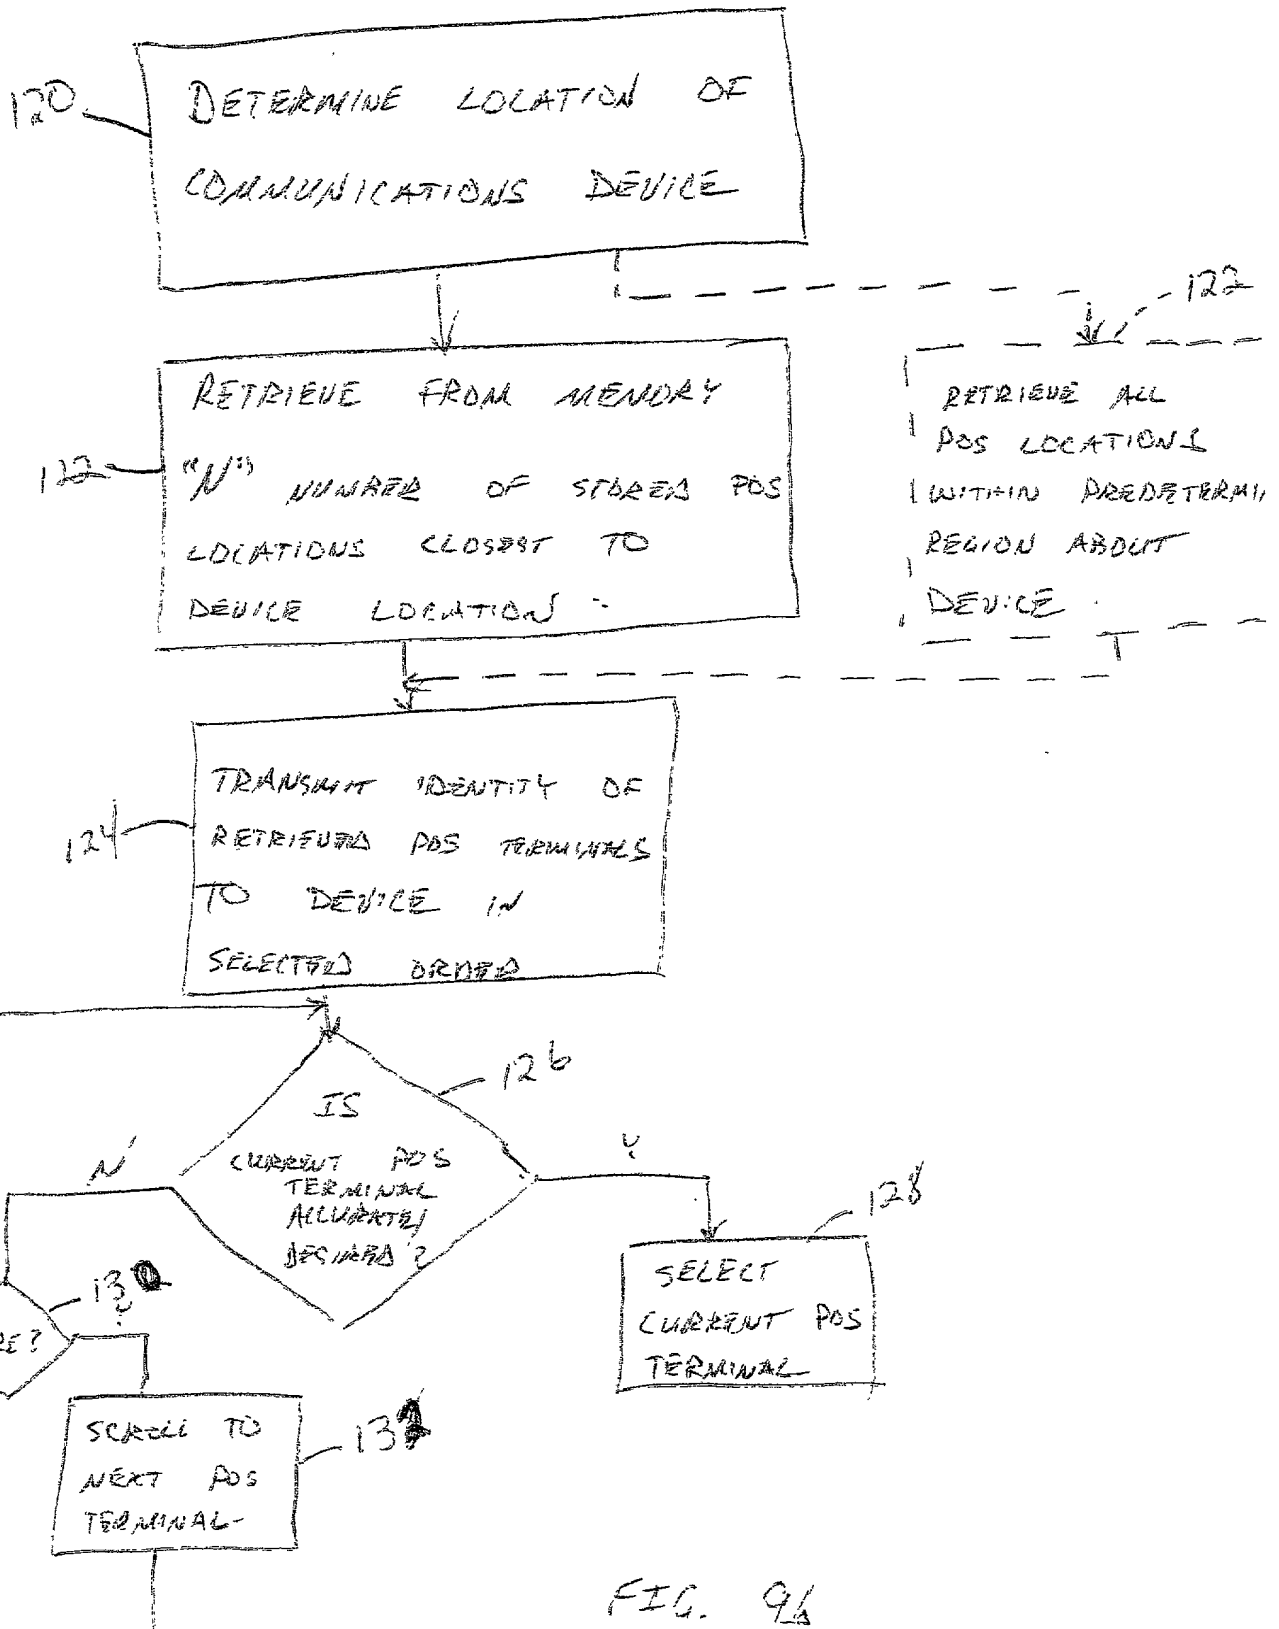 120
DETERMINE LOCATION OF
COMMUNICATIONS DEVICE
122
RETRIEVE FROM MEMORY
"N" NUMBER OF STORED POS
LOCATIONS CLOSEST TO
DEVICE LOCATION
122
RETRIEVE ALL
POS LOCATIONS
WITHIN PREDETERMI
REGION ABOUT
DEVICE
124
TRANSMIT IDENTITY OF
RETRIEVED POS TERMINALS
TO DEVICE IN
SELECTED ORDER
126
IS
CURRENT POS
TERMINAL
ACCURATE/
DESIRED?
N
Y
128
SELECT
CURRENT POS
TERMINAL
130
RE?
132
SCROLL TO
NEXT POS
TERMINAL
FIG.